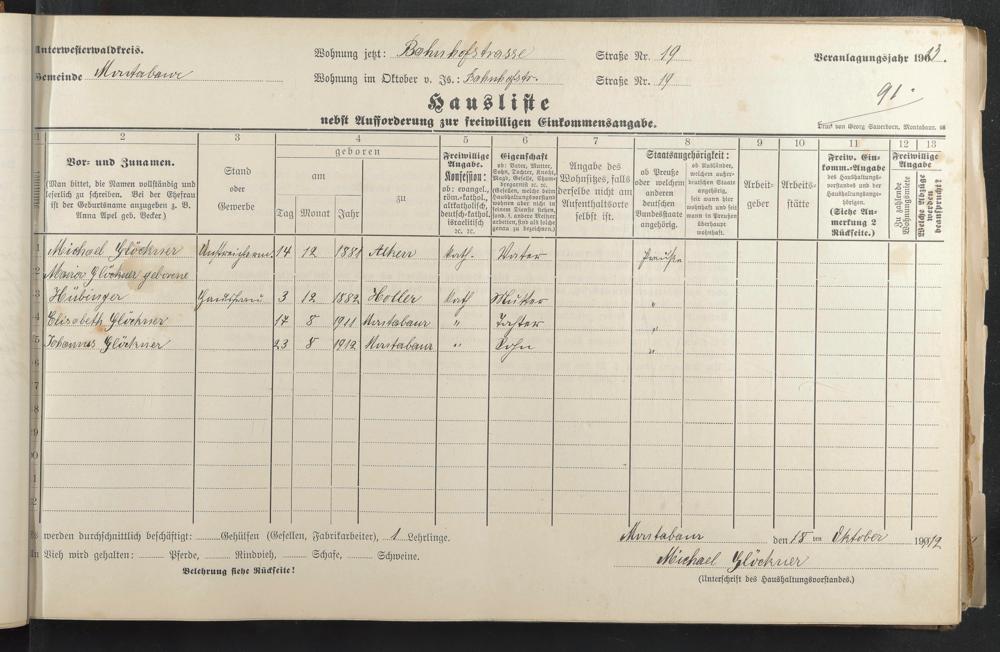 Unterwesterwaldkreis.
Gemeinde Montabaur
Wohnung jetzt: Bahnhofstrasse Straße Nr. 19
Wohnung im Oktober v. Js.: Bahnhofstr. Straße Nr. 19
Veranlagungsjahr 1913.
91.
Hausliste
nebst Aufforderung zur freiwilligen Einkommensangabe.
Druck von Georg Sauerborn, Montabaur.
1 2 3 4 5 6 7 8 9 10 11 12 13
Vor- und Zunamen.
(Man bittet, die Namen vollständig und
leserlich zu schreiben. Bei der Ehefrau
ist der Geburtsname anzugeben z. B.
Anna Apel geb. Becker.)
Stand
oder
Gewerbe
geboren
am
Tag Monat Jahr
zu
Freiwillige
Angabe.
Konfession:
ob: evangel.,
röm.-kathol.,
altkatholisch,
deutsch-kathol.
israelitisch
etc. etc.
Eigenschaft
ob: Vater, Mutter,
Sohn, Tochter, Knecht,
Magd, Geselle,
Angabe des
Wohnsitzes, falls
derselbe nicht am
Aufenthaltsorte
selbst ist.
Staatsangehörigkeit:
ob Preuße
oder welchem
anderen
deutschen
Bundesstaate
angehörig.
ob Ausländer,
welchem außer-
deutschen Staate
angehörig,
seit wann hier
wohnhaft und seit
wann in Preußen
überhaupt
wohnhaft.
Arbeit-
geber
Arbeits-
stätte
Freiw. Ein-
komm.-Angabe
des Haushaltungs-
vorstandes und der
Haushaltungsange-
hörigen.
(Siehe An-
merkung 2
Rückseite.)
Freiwillige
Angabe
Zu zahlende
Wohnungsmiete
Welche Abzüge
werden
beansprucht?
1 Michael Glöckner Anstreicherm. 14 12 1881 kath. Vater Preuße
2 Maria Glöckner geborene
3 Hübinger Hausfrau 3 12 1882 Holler kath Mutter "
4 Elisabeth Glöckner 17 8 1911 Montabaur " Tochter "
5 Johannes Glöckner 23 8 1912 Montabaur " Sohn "
6
7
8
9
10
11
12
Es werden durchschnittlich beschäftigt: Gehülfen (Gesellen, Fabrikarbeiter), 1 Lehrlinge.
An Vieh wird gehalten: Pferde, Rindvieh, Schafe, Schweine.
Belehrung siehe Rückseite!
Montabaur den 18 ten Oktober 1912
Michael Glöckner
(Unterschrift des Haushaltungsvorstandes.)